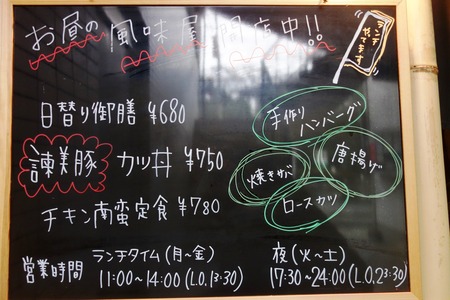 お昼の風味屋開店中!!
ランチ
やってます
日替り御膳 ¥680
諫美豚 カツ丼 ¥750
チキン南蛮定食 ¥780
手作り
ハンバーグ
唐揚げ
焼きサバ
ロースカツ
営業時間
ランチタイム(月~金)
11:00~14:00(L.O.13:30)
夜(火~土)
17:30~24:00(L.O.23:30)